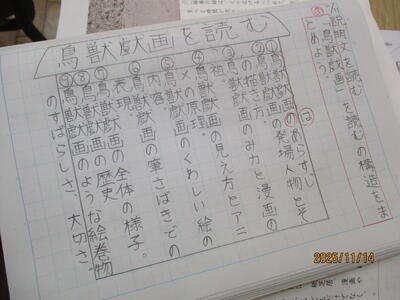 説明文を読む
「鳥獣戯画」を読むの構造をま
とめよう。
鳥獣戯画を読む
①鳥獣戯画のあらすじ
②鳥獣戯画の発場人物とそ
の描き方。
③鳥獣戯画のみ力と漫画の
祖。
④鳥獣戯画の見え方とアニ
メの原理。
⑤鳥獣戯画のくわしい絵の
内容。
⑥鳥獣戯画の筆さばきでの
表現。
⑦鳥獣戯画の全体の様子。
⑧鳥獣戯画の歴史
⑨鳥獣戯画のような絵巻物
のすばらしさ、大切さ。
2025/11/14